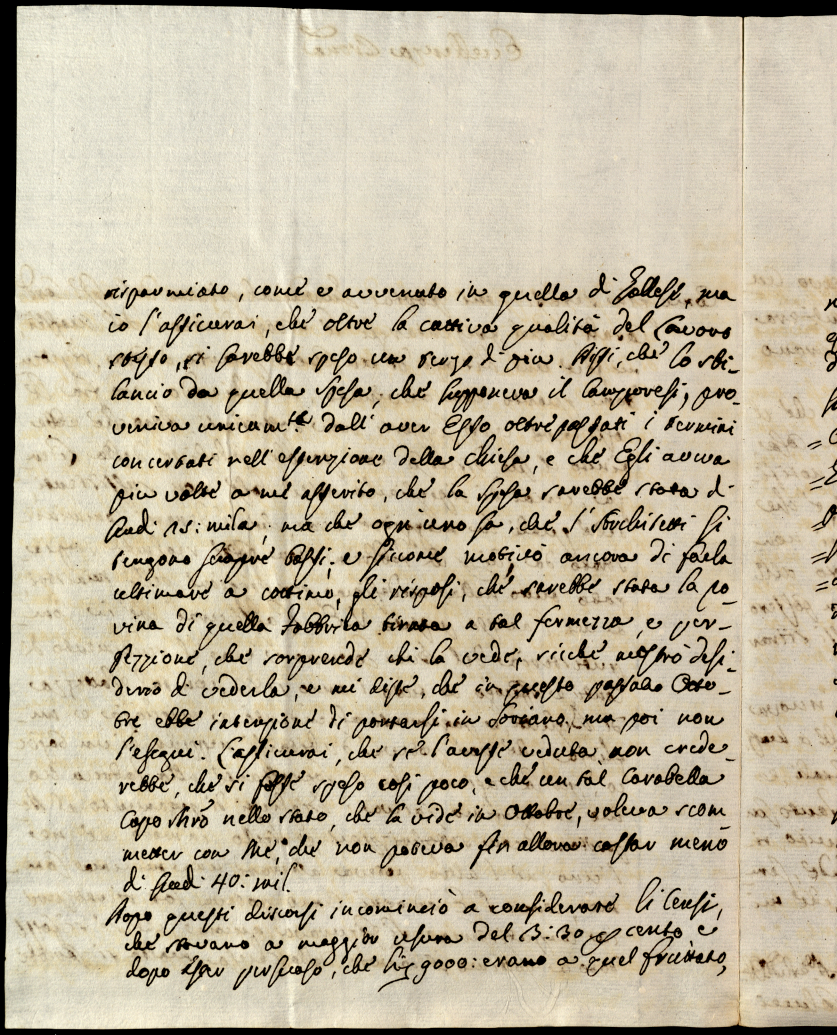 risparmiato, come è avvenuto in quella di Gallese, ma
io l'assicurai, che oltre la cattiva qualità del lavoro
stesso, si sarebbe speso un terzo di più. Dissi, che lo sbi-
lancio da quella spesa, che supponeva il Camporesi, pro-
veniva unicamte dall'aver Esso oltrepassati i termini
concertati nell'estenzione della chiesa, e che Egli aveva
più volte a me asserito, che la spesa sarebbe stata di
scudi 15: mila, ma che ogn'uno sa, che l'Architetti si
tengono sempre bassi; e siccome motivò ancora di farla
ultimare a cottimo, gli risposi, che sarebbe stata la ro-
vina di quella Fabbrica tirata a tal fermezza, e per-
fezzione, che sorprende chi la vede, sicche mostrò desi-
derio di vederla, e mi disse, che in questo passato Otto-
bre ebbe intenzione di portarsi in Soriano, ma poi non
l'eseguì. L'assicurai, che se l'avesse veduta, non crede-
rebbe, che si fosse speso così poco, e che un tal Carabella
Capo Mro nello stato, che la vide in Ottobre, voleva scom
metter con Me, che non poteva fin allora costar meno
di scudi 40: mil.
Dopo questi discorsi incominciò a considerare li Censi,
che stavano a maggior usura del 3:30 p cento e
dopo esser persuaso, che 9000: erano a quel fruttato,